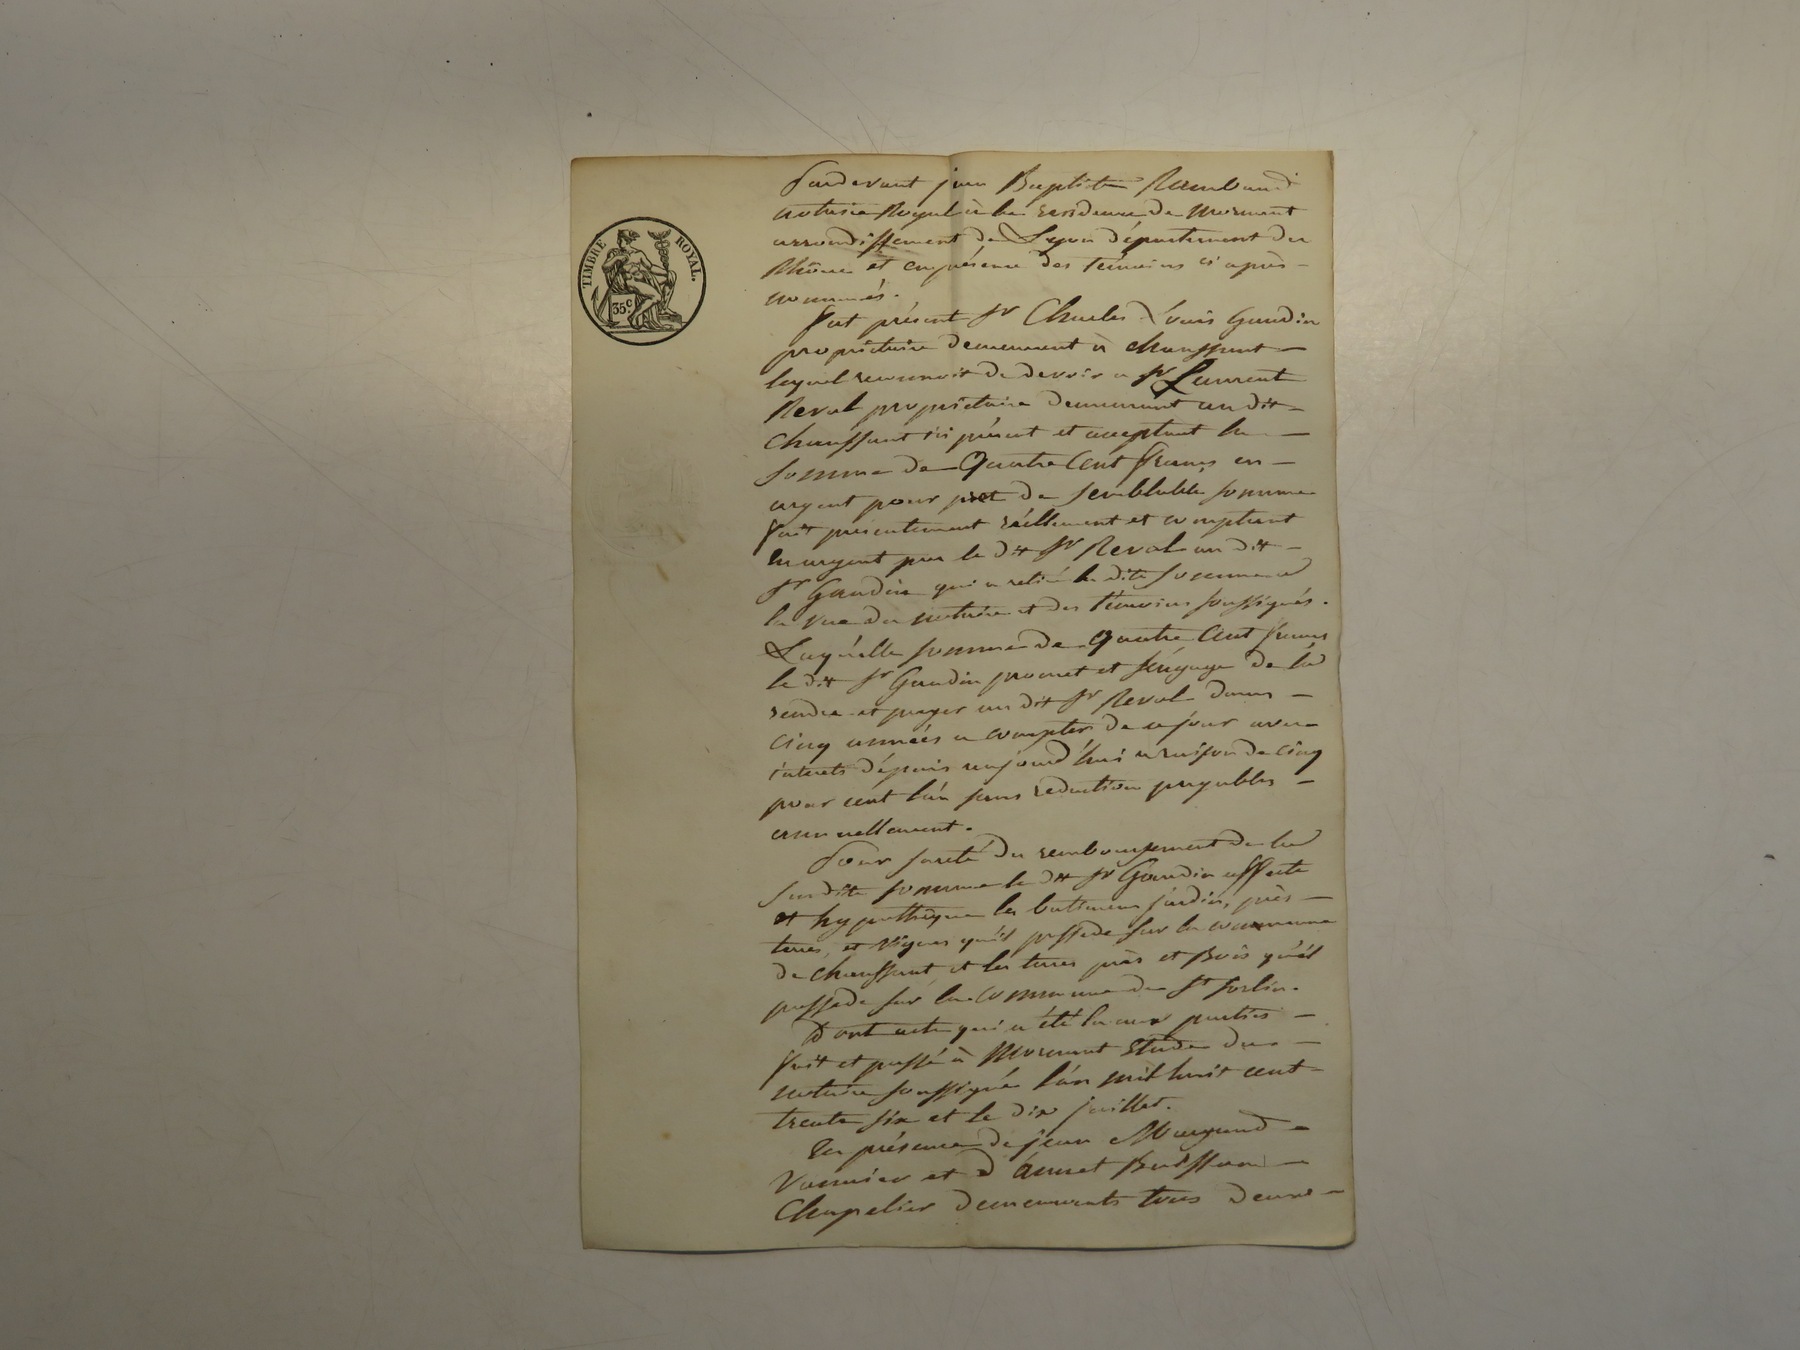 TIMBRE ROYAL.
35c.
Pardevant jean Baptiste Rambaud
notaire Royal à la residence de Mornant
arrondissement de Lyon département du
Rhône et en présence des témoins ci après
nommés.
fut présent sr Charles Louis Gaudin
propriétaire demeurant à chaussant
lequel reconnoit de devoir a sr Laurent
Reval propriétaire demeurant au dit
chaussant ici présent et acceptant la
somme de Quatre Cent francs en
argent pour pret de semblable somme
fait presentement réellement et comptant
en argent par le dit sr Reval au dit
sr Gaudin qui a retiré la dite somme a
la vue du notaire et des témoins soussignés.
Laquelle somme de quatre Cent francs
le dit sr Gaudin promet et s'engage de la
rendre et payer au dit sr Reval dans
cinq années a compter de ce jour avec
interets dépuis aujourd'hui a raison de cinq
pour cent l'an sans reduction payables
annuellement.
Pour sureté du remboursement de la
susdite somme le dit sr Gaudin affecte
et hypothèque les battimens jardin, près
terres, et vignes qu'il possede sur la commune
de chaussant et les terres près et Bois qu'il
possede sur la commune de St Sorlin.
Dont acte qui a été lu aux parties
fait et passé à Mornant Etude du
notaire soussigné l'an mil huit cent
trente six et le dix juillet.
En présence de jean
Vannier et d'annet Buisson
Chapelier demeurants tous deux